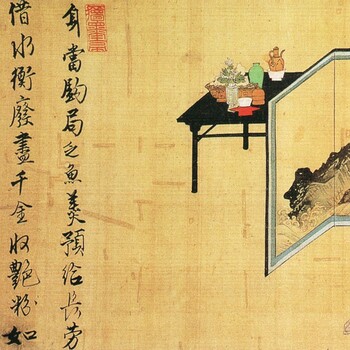 身當鈎局乏魚羹預給長勞
借水衡廢盡千金收艷粉如